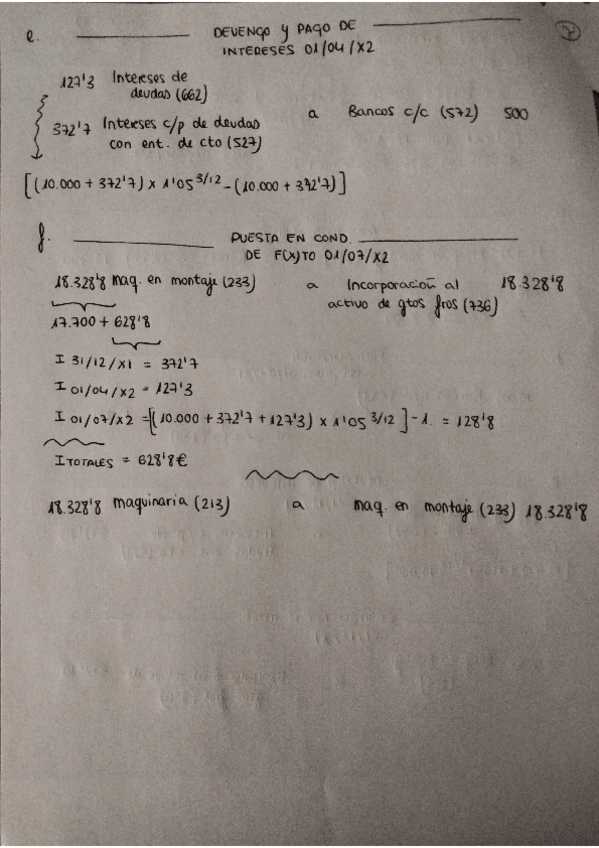 e. DEVENGO Y PAGO DE
INTERESES 01/04/X2
127'3 Intereses de
deudas (662)
a Bancos c/c (572) 500
372'7 Intereses c/p de deudas
con ent. de cto (527)
[(10.000 + 372'7) x 1'05 3/12 - (10.000 + 372'7)]
f. PUESTA EN COND.
DE F(X)TO 01/07/X2
18.328'8 maq. en montaje (233) a Incorporación al 18.328'8
activo de gtos fros (736)
17.700 + 628'8
I 31/12/X1 = 372'7
I 01/04/X2 = 127'3
I 01/07/X2 = [(10.000 + 372'7 + 127'3) x 1'05 3/12] - 1. = 128'8
I TOTALES = 628'8€
18.328'8 maquinaria (213) a maq. en montaje (233) 18.328'8